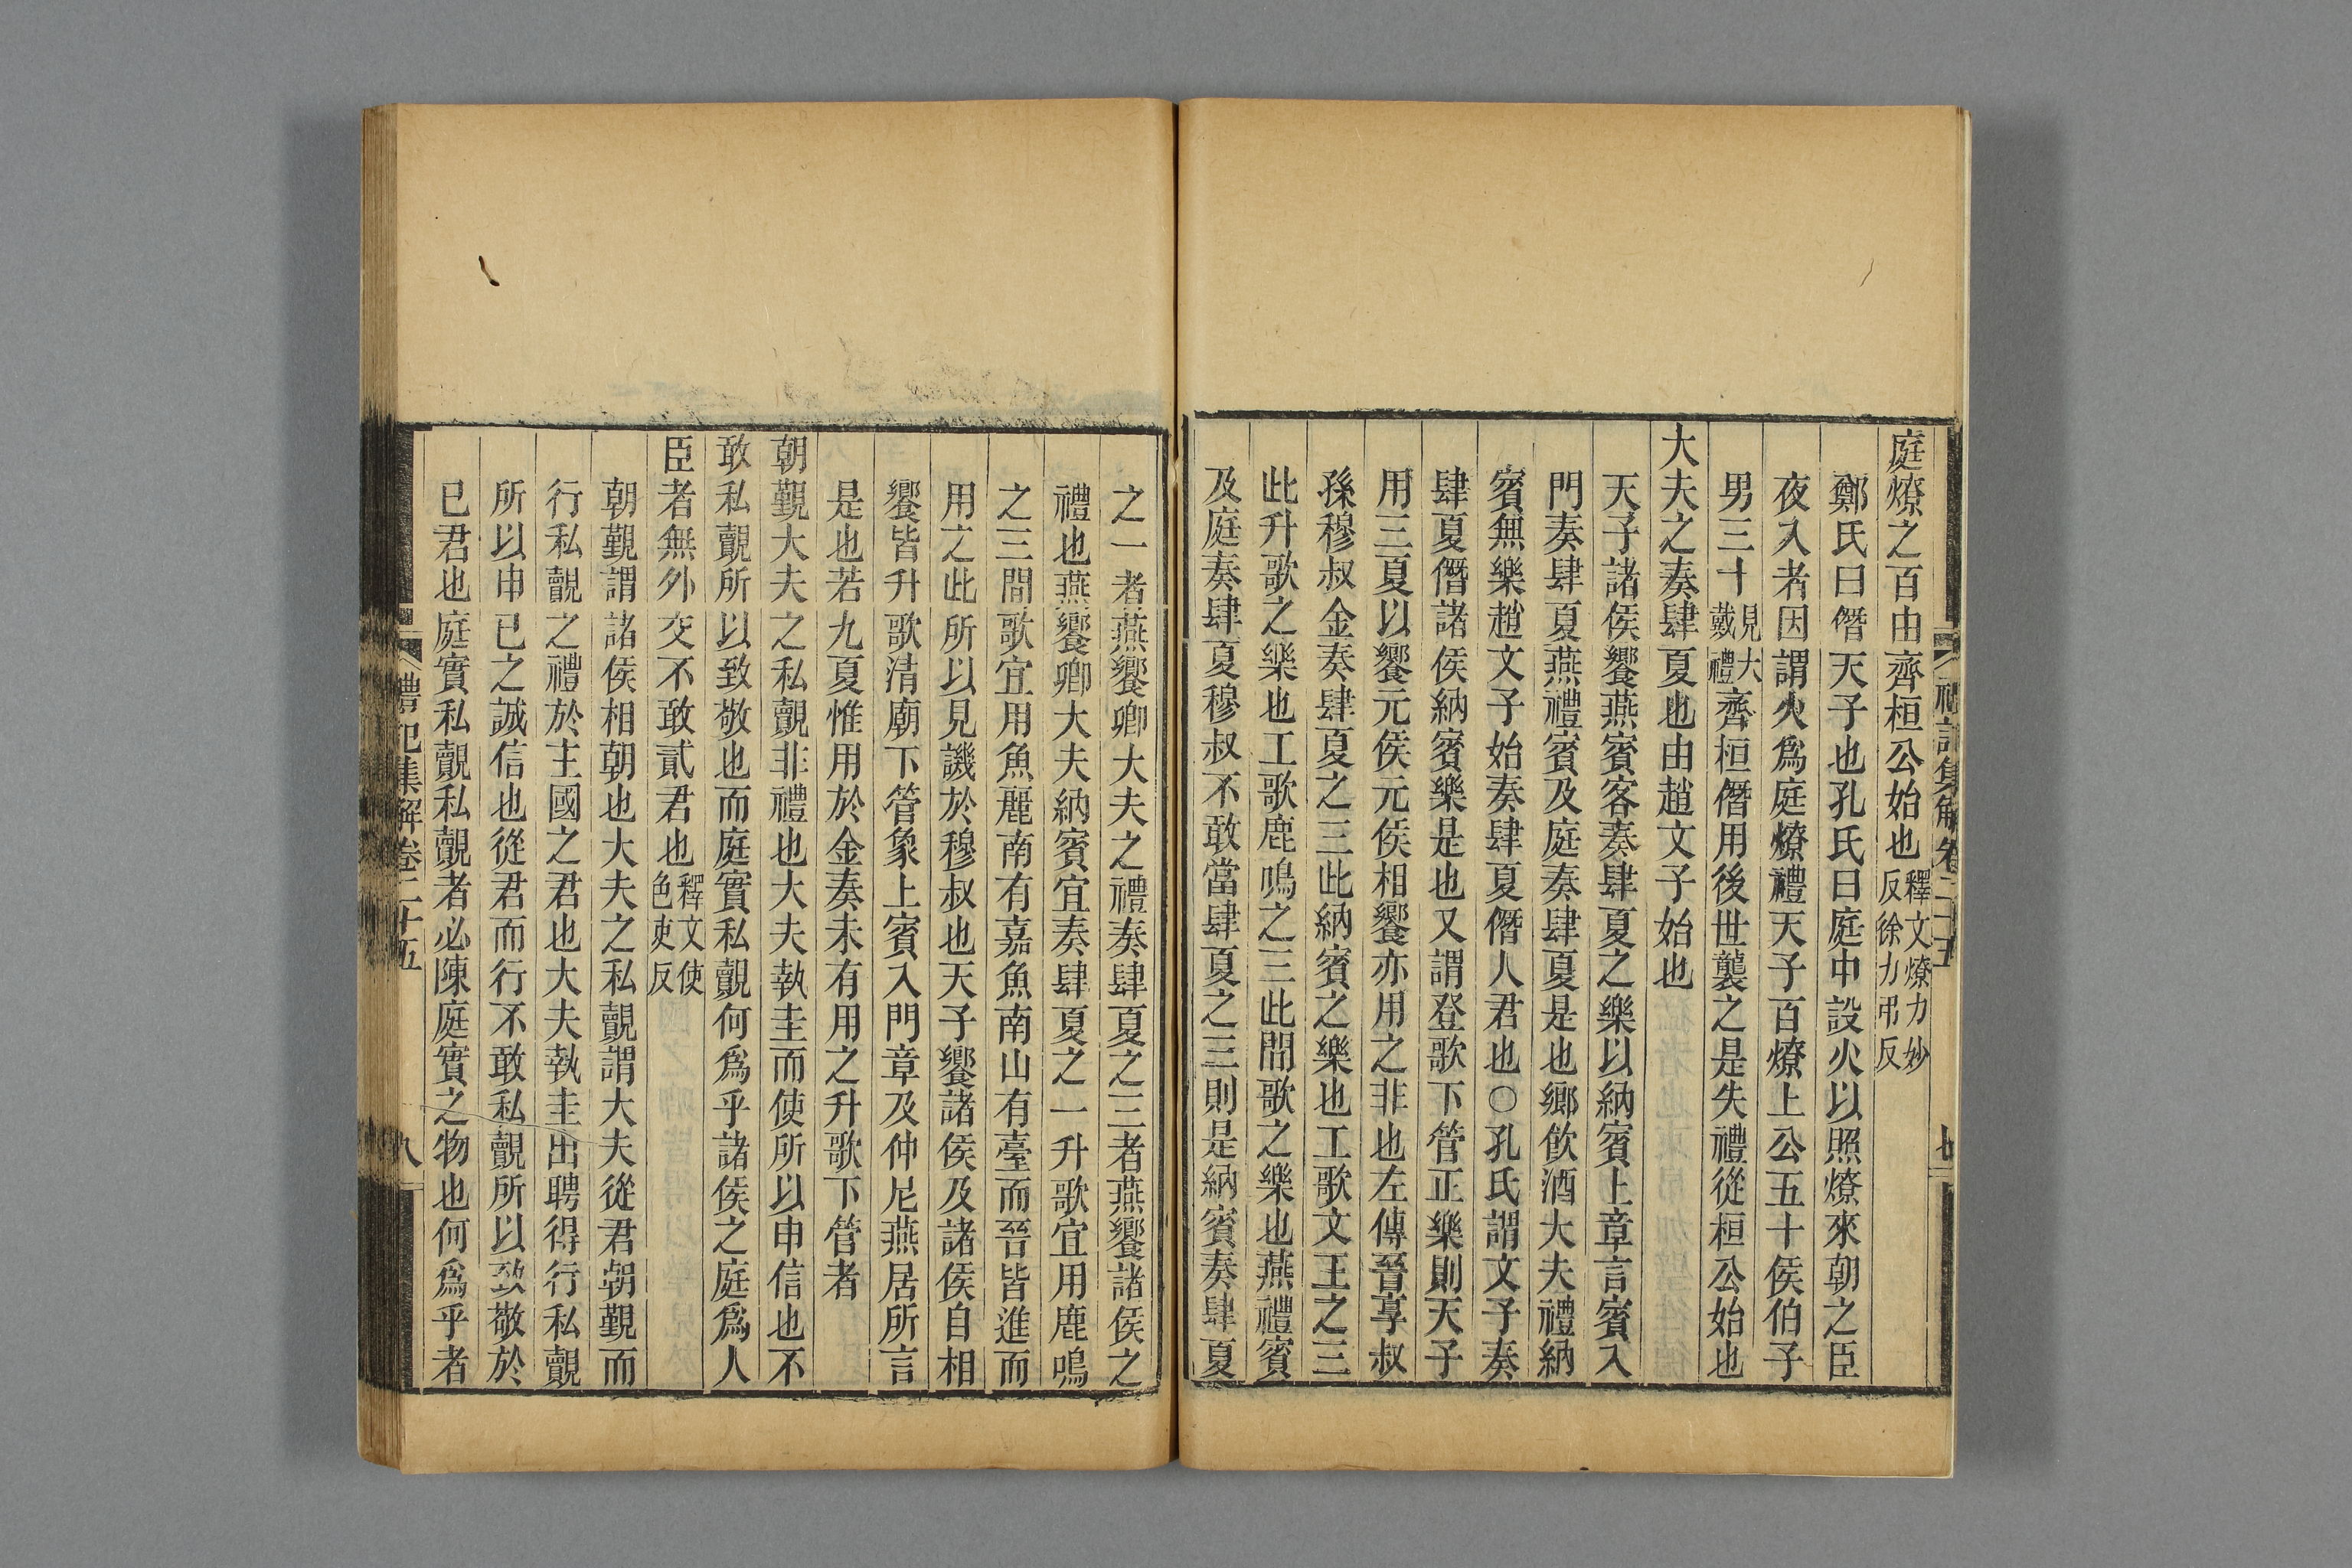 禮記集解卷二十五
七
庭燎之百由齊桓公始也釋文燎力妙反徐力弔反
鄭氏曰僭天子也孔氏曰庭中設火以照燎來朝之臣
夜入者因謂火爲庭燎禮天子百燎上公五十侯伯子
男三十見大戴禮齊桓僭用後世襲之是失禮從桓公始也
大夫之奏肆夏也由趙文子始也
天子諸侯饗燕賓客奏肆夏之樂以納賓上章言賓入
門奏肆夏燕禮賓及庭奏肆夏是也鄉飲酒大夫禮納
賓無樂趙文子始奏肆夏僭人君也○孔氏謂文子奏
肆夏僭諸侯納賓樂是也又謂登歌下管正樂則天子
用三夏以饗元侯元侯相饗亦用之非也左傳晉享叔
孫穆叔金奏肆夏之三此納賓之樂也工歌文王之三
此升歌之樂也工歌鹿鳴之三此間歌之樂也燕禮賓
及庭奏肆夏穆叔不敢當肆夏之三則是納賓奏肆夏
之一者燕饗卿大夫之禮奏肆夏之三者燕饗諸侯之
禮也燕饗卿大夫納賓宜奏肆夏之一升歌宜用鹿鳴
之三間歌宜用魚麗南有嘉魚南山有臺而晉皆進而
用之此所以見譏於穆叔也天子饗諸侯及諸侯自相
饗皆升歌清廟下管象上賓入門章及仲尼燕居所言
是也若九夏惟用於金奏未有用之升歌下管者
朝覲大夫之私覿非禮也大夫執圭而使所以申信也不
敢私覿所以致敬也而庭實私覿何爲乎諸侯之庭爲人
臣者無外交不敢貳君也釋文使色吏反
朝覲謂諸侯相朝也大夫之私覿謂大夫從君朝覲而
行私覿之禮於主國之君也大夫執圭出聘得行私覿
所以申己之誠信也從君而行不敢私覿所以致敬於
已君也庭實私覿私覿者必陳庭實之物也何爲乎者
禮記集解卷二十五
八